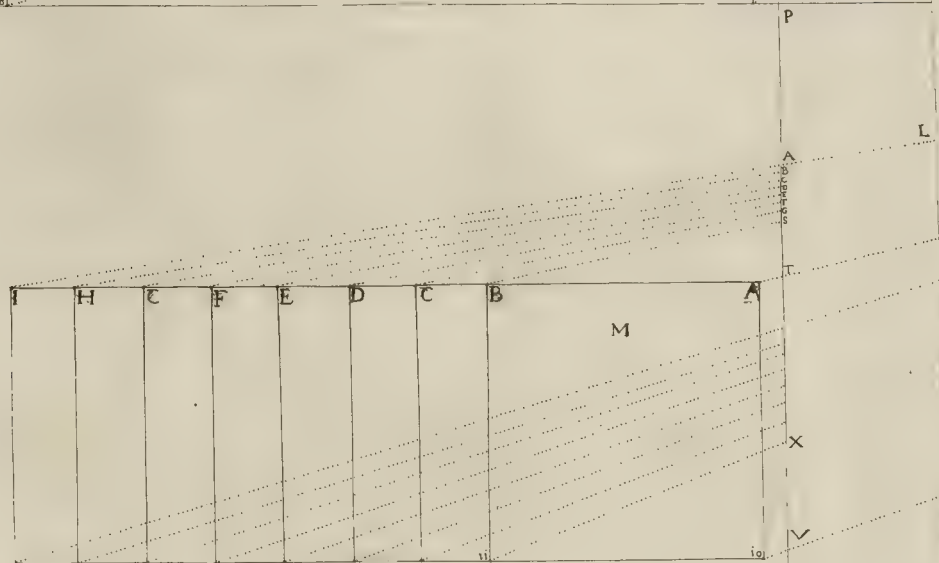 P
L
A
B
C
D
E
F
G
S
T
I H C F E D C B A
M
X
V
11 10